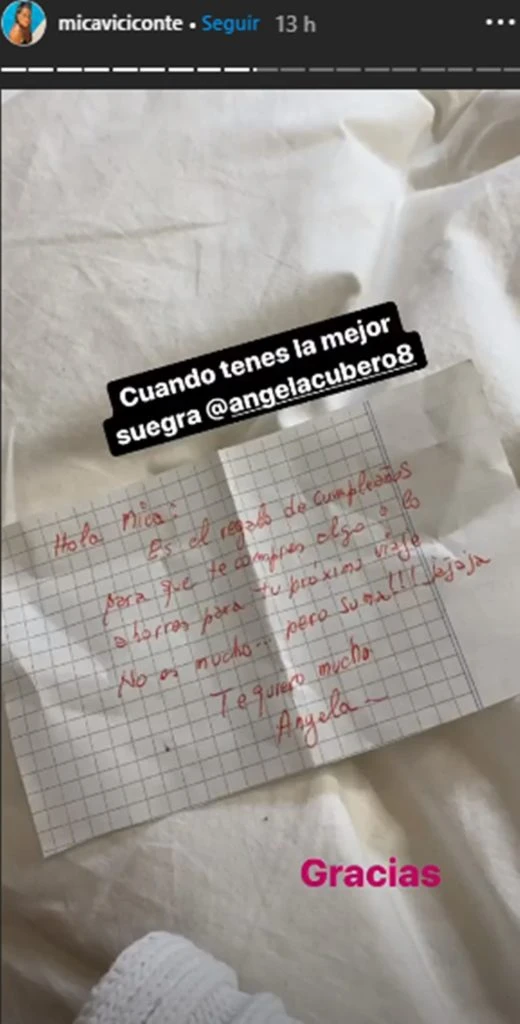 micaviciconte • Seguir 13 h
Cuando tenes la mejor
suegra @angelacubero8
Hola Mica:
Es el regalo de cumpleaños
para que te compres algo o lo
ahorres para tu próximo viaje
No es mucho... pero suma!!! jajaja
Te quiero mucho
Angela
Gracias